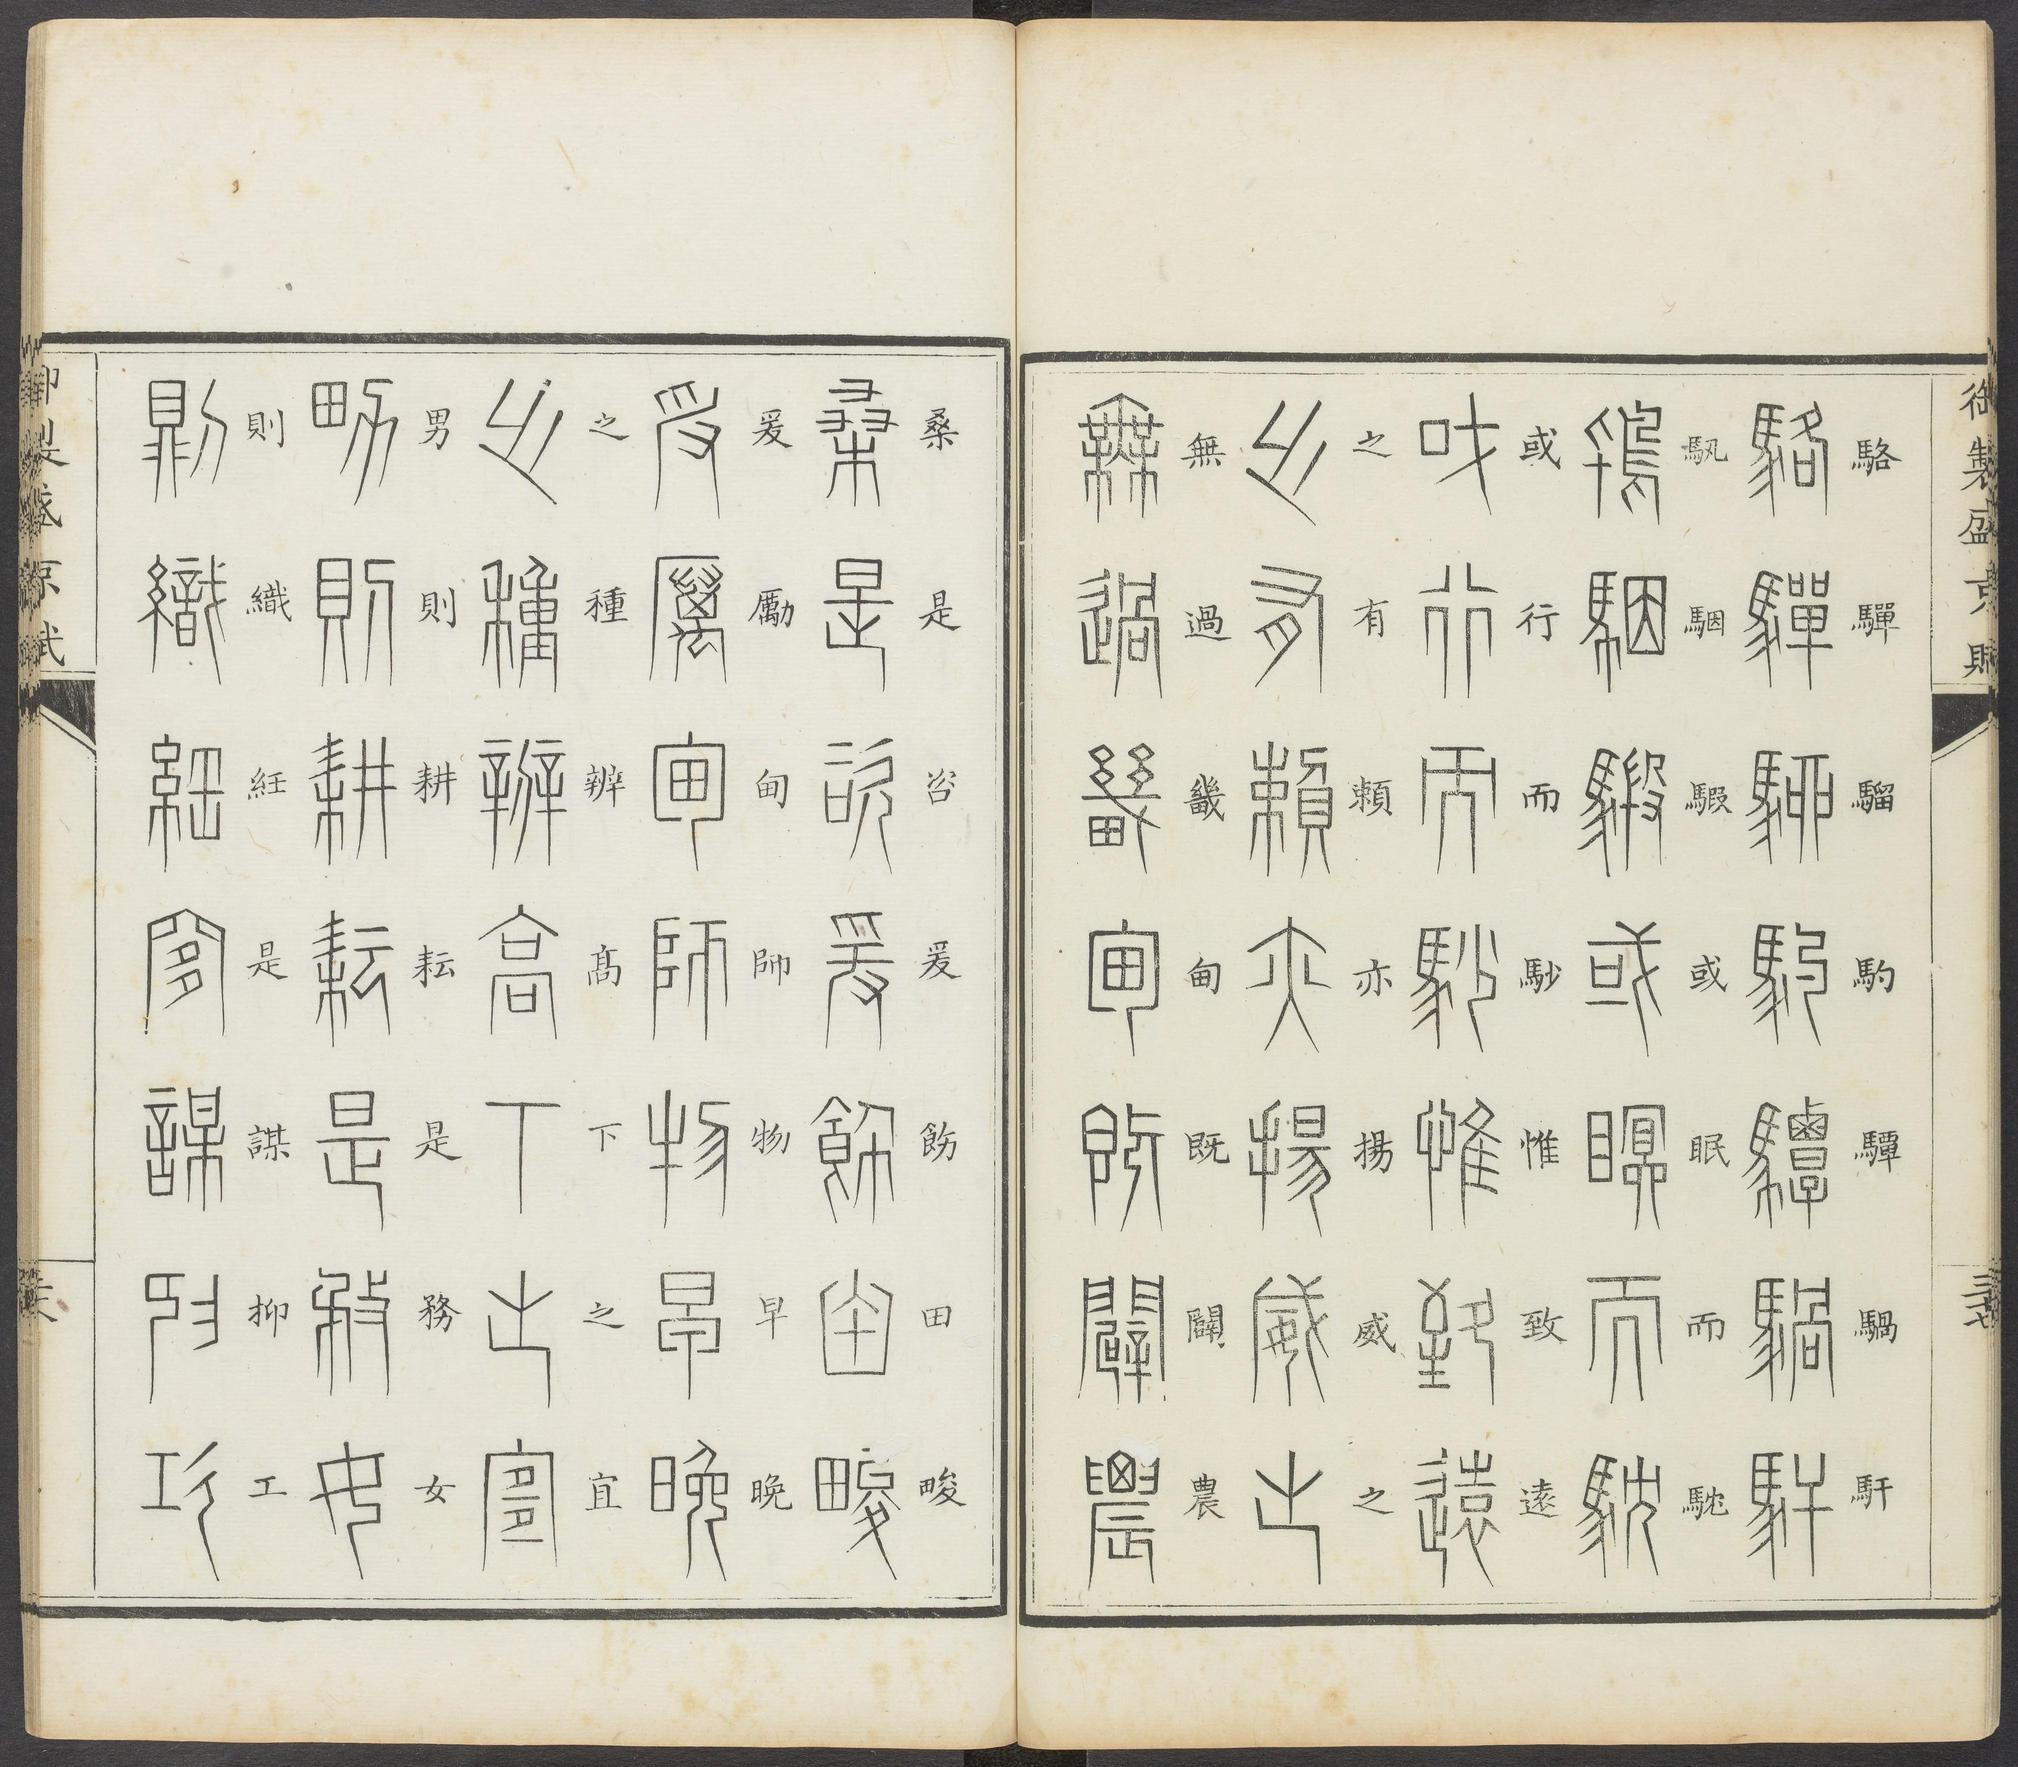 御製盛京賦
駱驒騮馰驔騧馯
駰騢或眠而
或行而䮂惟致遠
之有賴亦揚威之
無過畿甸既闢農
三十七
桑是咨爰飭田畯
爰勵甸師物早晚
之種辨高下之宜
男則耕耘是務女
則織紝是謀抑工
御製盛京賦